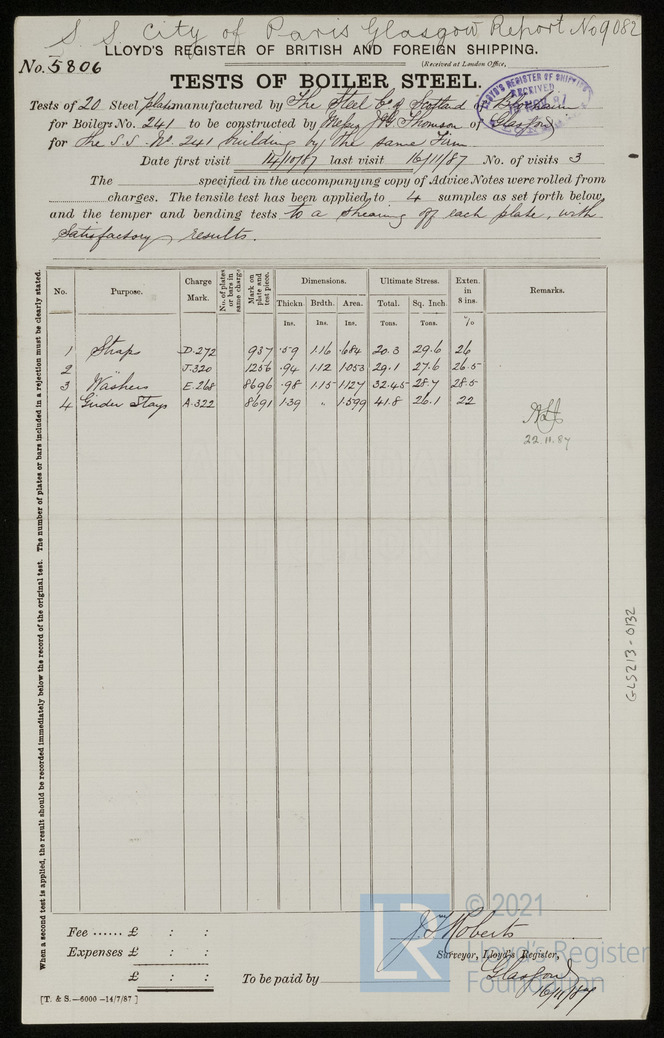 S S City of Paris Glasgow Report No 9082
LLOYD'S REGISTER OF BRITISH AND FOREIGN SHIPPING.
No. 5806
(Received at London Office,
TESTS OF BOILER STEEL.
LLOYD'S REGISTER OF SHIPPING
RECEIVED
Tests of 20 Steel plates manufactured by The Steel Co of Scotland of Blochairn
for Boilers No. 241 to be constructed by Messrs J & G Thomson of Glasgow
for the S.S. No. 241 building by the same Firm
Date first visit 14/10/87 last visit 16/11/87 No. of visits 3
The specified in the accompanying copy of Advice Notes were rolled from
charges. The tensile test has been applied to 4 samples as set forth below
and the temper and bending tests to a shearing off each plate, with
satisfactory results.
No. Purpose. Charge Mark. No. of plates or bars in same charge Mark on plate and test piece. Dimensions. Ultimate Stress. Exten. in 8 ins. Remarks.
Thickn. Brdth. Area. Total. Sq. Inch.
Ins. Ins. Ins. Tons. Tons. %
1 Straps D.272 937 .59 1.16 .684 20.3 29.6 26
2 J.320 1256 .94 1.12 1.053 29.1 27.6 26.5
3 Washers E.268 8696 .98 1.15 1.127 32.45 28.7 28.5
4 Girder Stays A.322 8691 1.39 " 1.599 41.8 26.1 22
22.11.87
When a second test is applied, the result should be recorded immediately below the record of the original test. The number of plates or bars included in a rejection must be clearly stated.
GLS213-0132
Fee ...... £ : :
Expenses £ : :
£ : :
To be paid by
Surveyor, Lloyd's Register,
Glasgow
16/11/87
[T. & S.—6000—14/7/87]
LR
© 2021
Lloyd's Register
Foundation